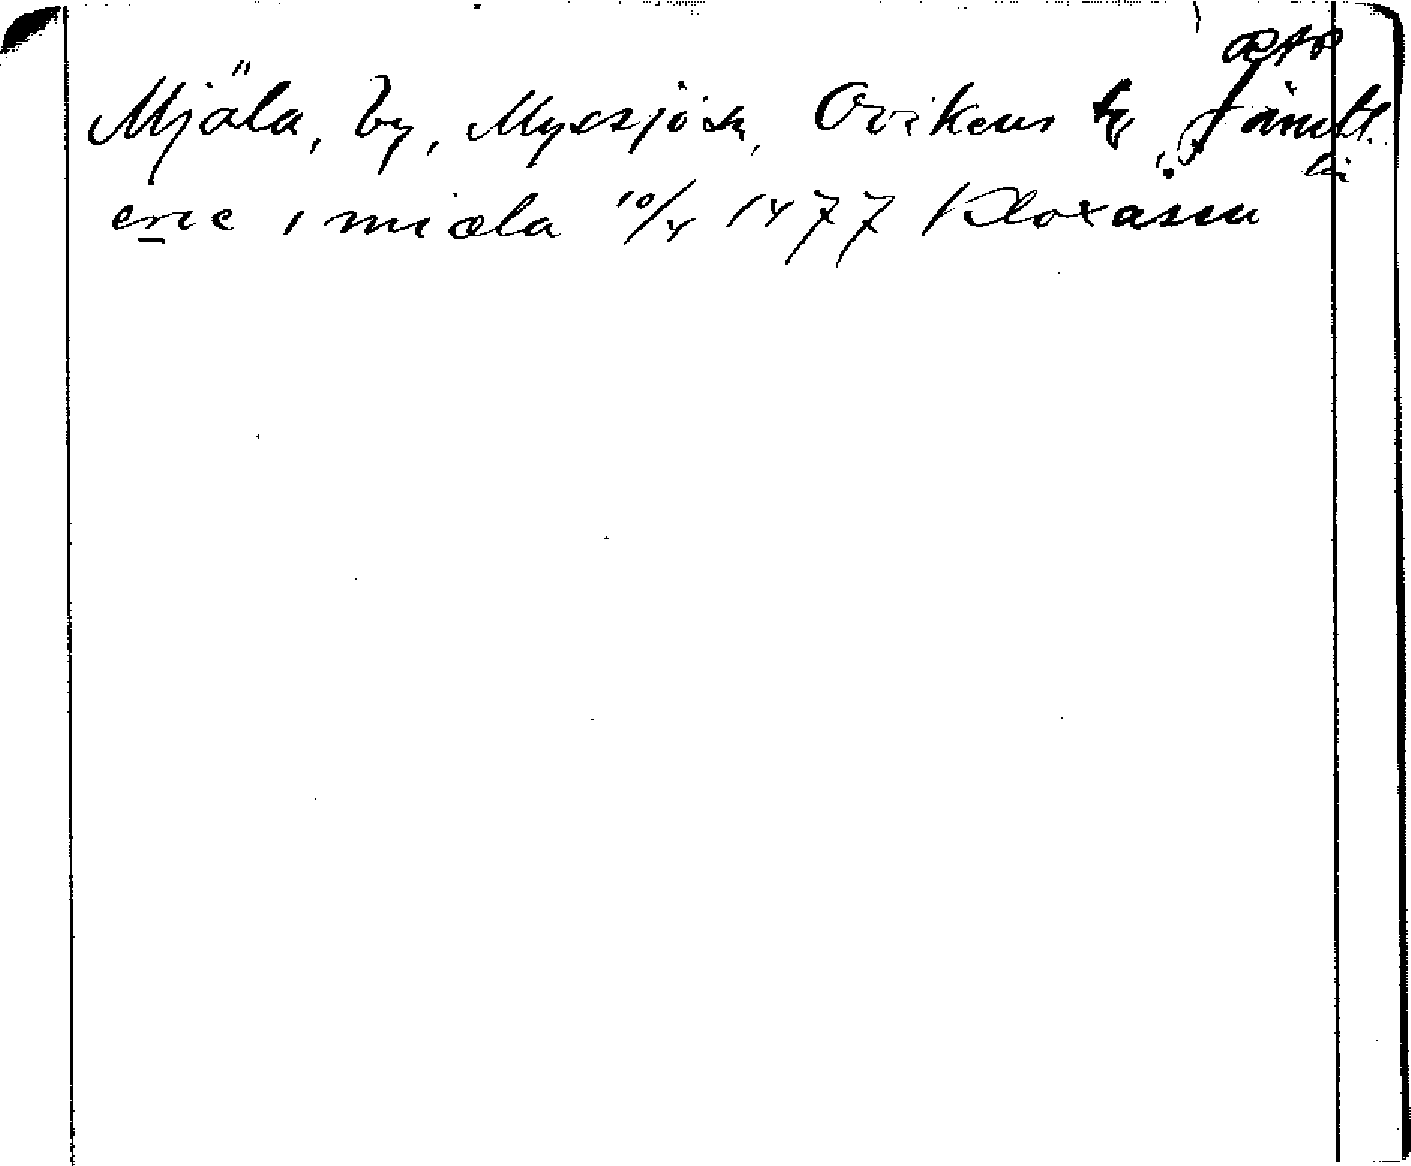 Mjäla, by, Myssjö sn, Ovikens tg, Jämtl.
län
eric i miæla 10/4 1477 Kloxåsen